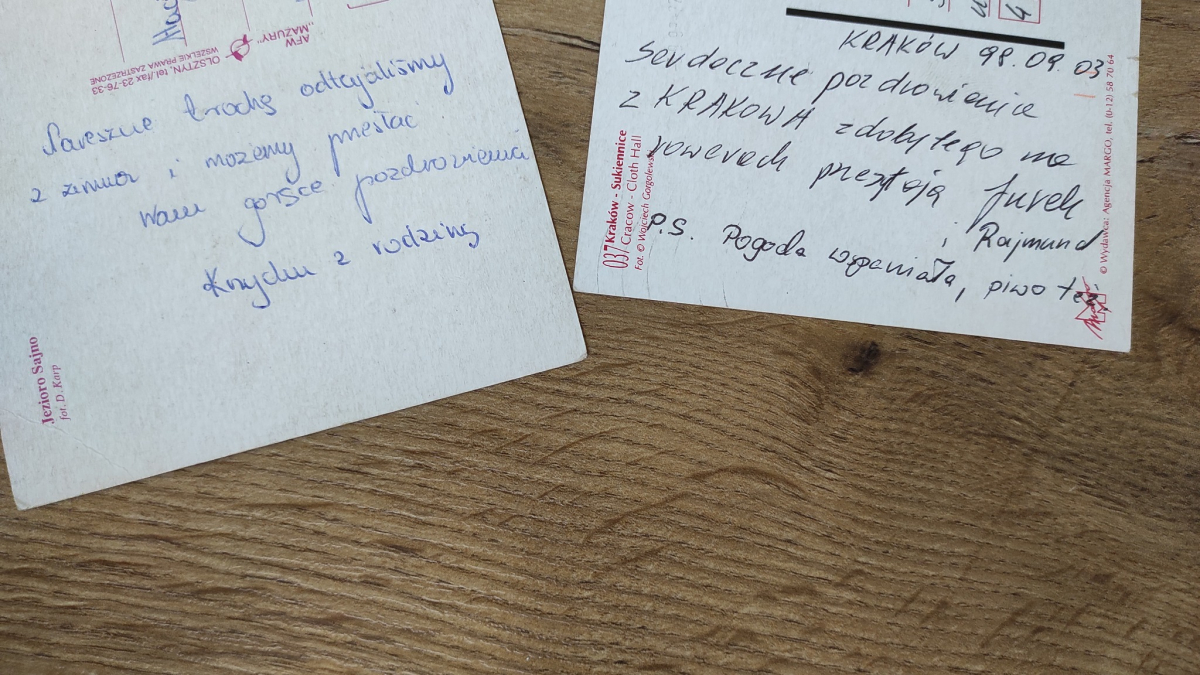 AFW
„MAZURY”
OLSZTYN, tel./fax 23-76-33
WSZELKIE PRAWA ZASTRZEŻONE
Nareszcie trochę odtajaliśmy
z zimna i możemy przesłać
Wam gorące pozdrowienia
Krzychu z rodziną
Jezioro Sajno
fot. D. Karp
4
KRAKÓW 98.09.03
Serdeczne pozdrowienia
z KRAKOWA zdobytego na
rowerach przesyłają Jurek
i Rajmund
P.S. Pogoda wspaniała, piwo też.
037 Kraków - Sukiennice
Cracow - Cloth Hall
Fot. © Wojciech Gorgolewski
© Wydawca: Agencja MARGO, tel. (0-12) 58 70 64